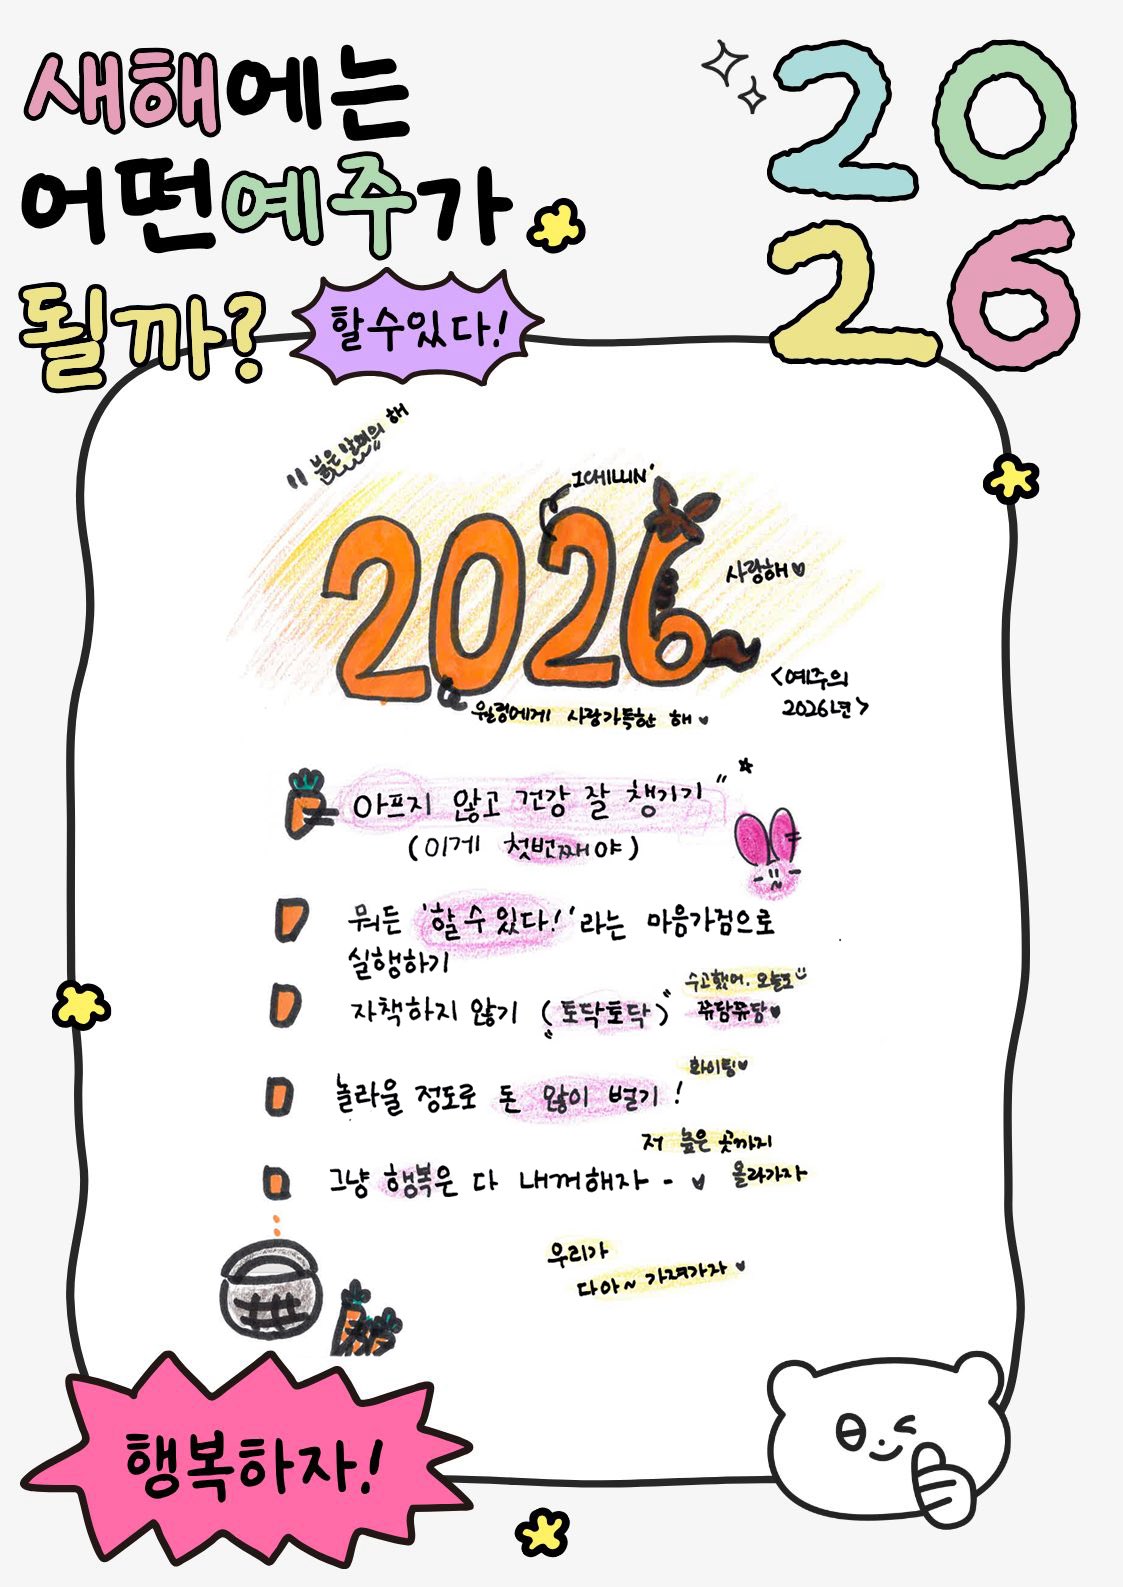 새해에는
어떤예주가
될까?
할수있다!
2026
"붉은 말의 해
2026
ICHILLIN'
사랑해♥
<예주의
2026년>
윌링에게 사랑가득한 해♥
아프지 않고 건강 잘 챙기기"
(이게 첫번째야)
뭐든 '할 수 있다!'라는 마음가짐으로
실행하기
자책하지 않기 (토닥토닥)
수고했어. 오늘도
쮸담쮸담♥
놀라울 정도로 돈 많이 벌기!
화이팅♥
그냥 행복은 다 내꺼해자-♥
저 높은 곳까지
올라가자
우리가
다아~ 가져가자♥
행복하자!